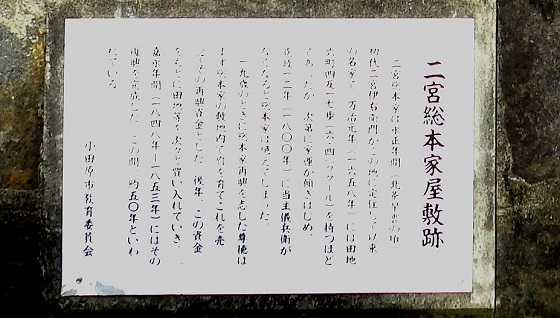 二宮総本家屋敷跡
二宮総本家は永正年間(北条早雲の頃
初代二宮伊右衛門がこの地に定住して以来
の名家で、万治元年(一六五八年)には田地
六町四反二七歩(六・四ヘクタール)を持つほど
であったが、次第に家運が傾きはじめ、
寛政一二年(一八〇〇年)に当主儀兵衛が
なくなると総本家は絶えてしまった。
一九歳のときに総本家再興を志した尊徳は
まず総本家の敷地内で竹を育てこれを売
ってその再興資金とした。後年、この資金
をもとに田地等を次々と買い入れていき、
嘉永年間(一八四八年ー一八五三年)にはその
再興を完成した。この間、約五〇年といわ
れている。
小田原市教育委員会